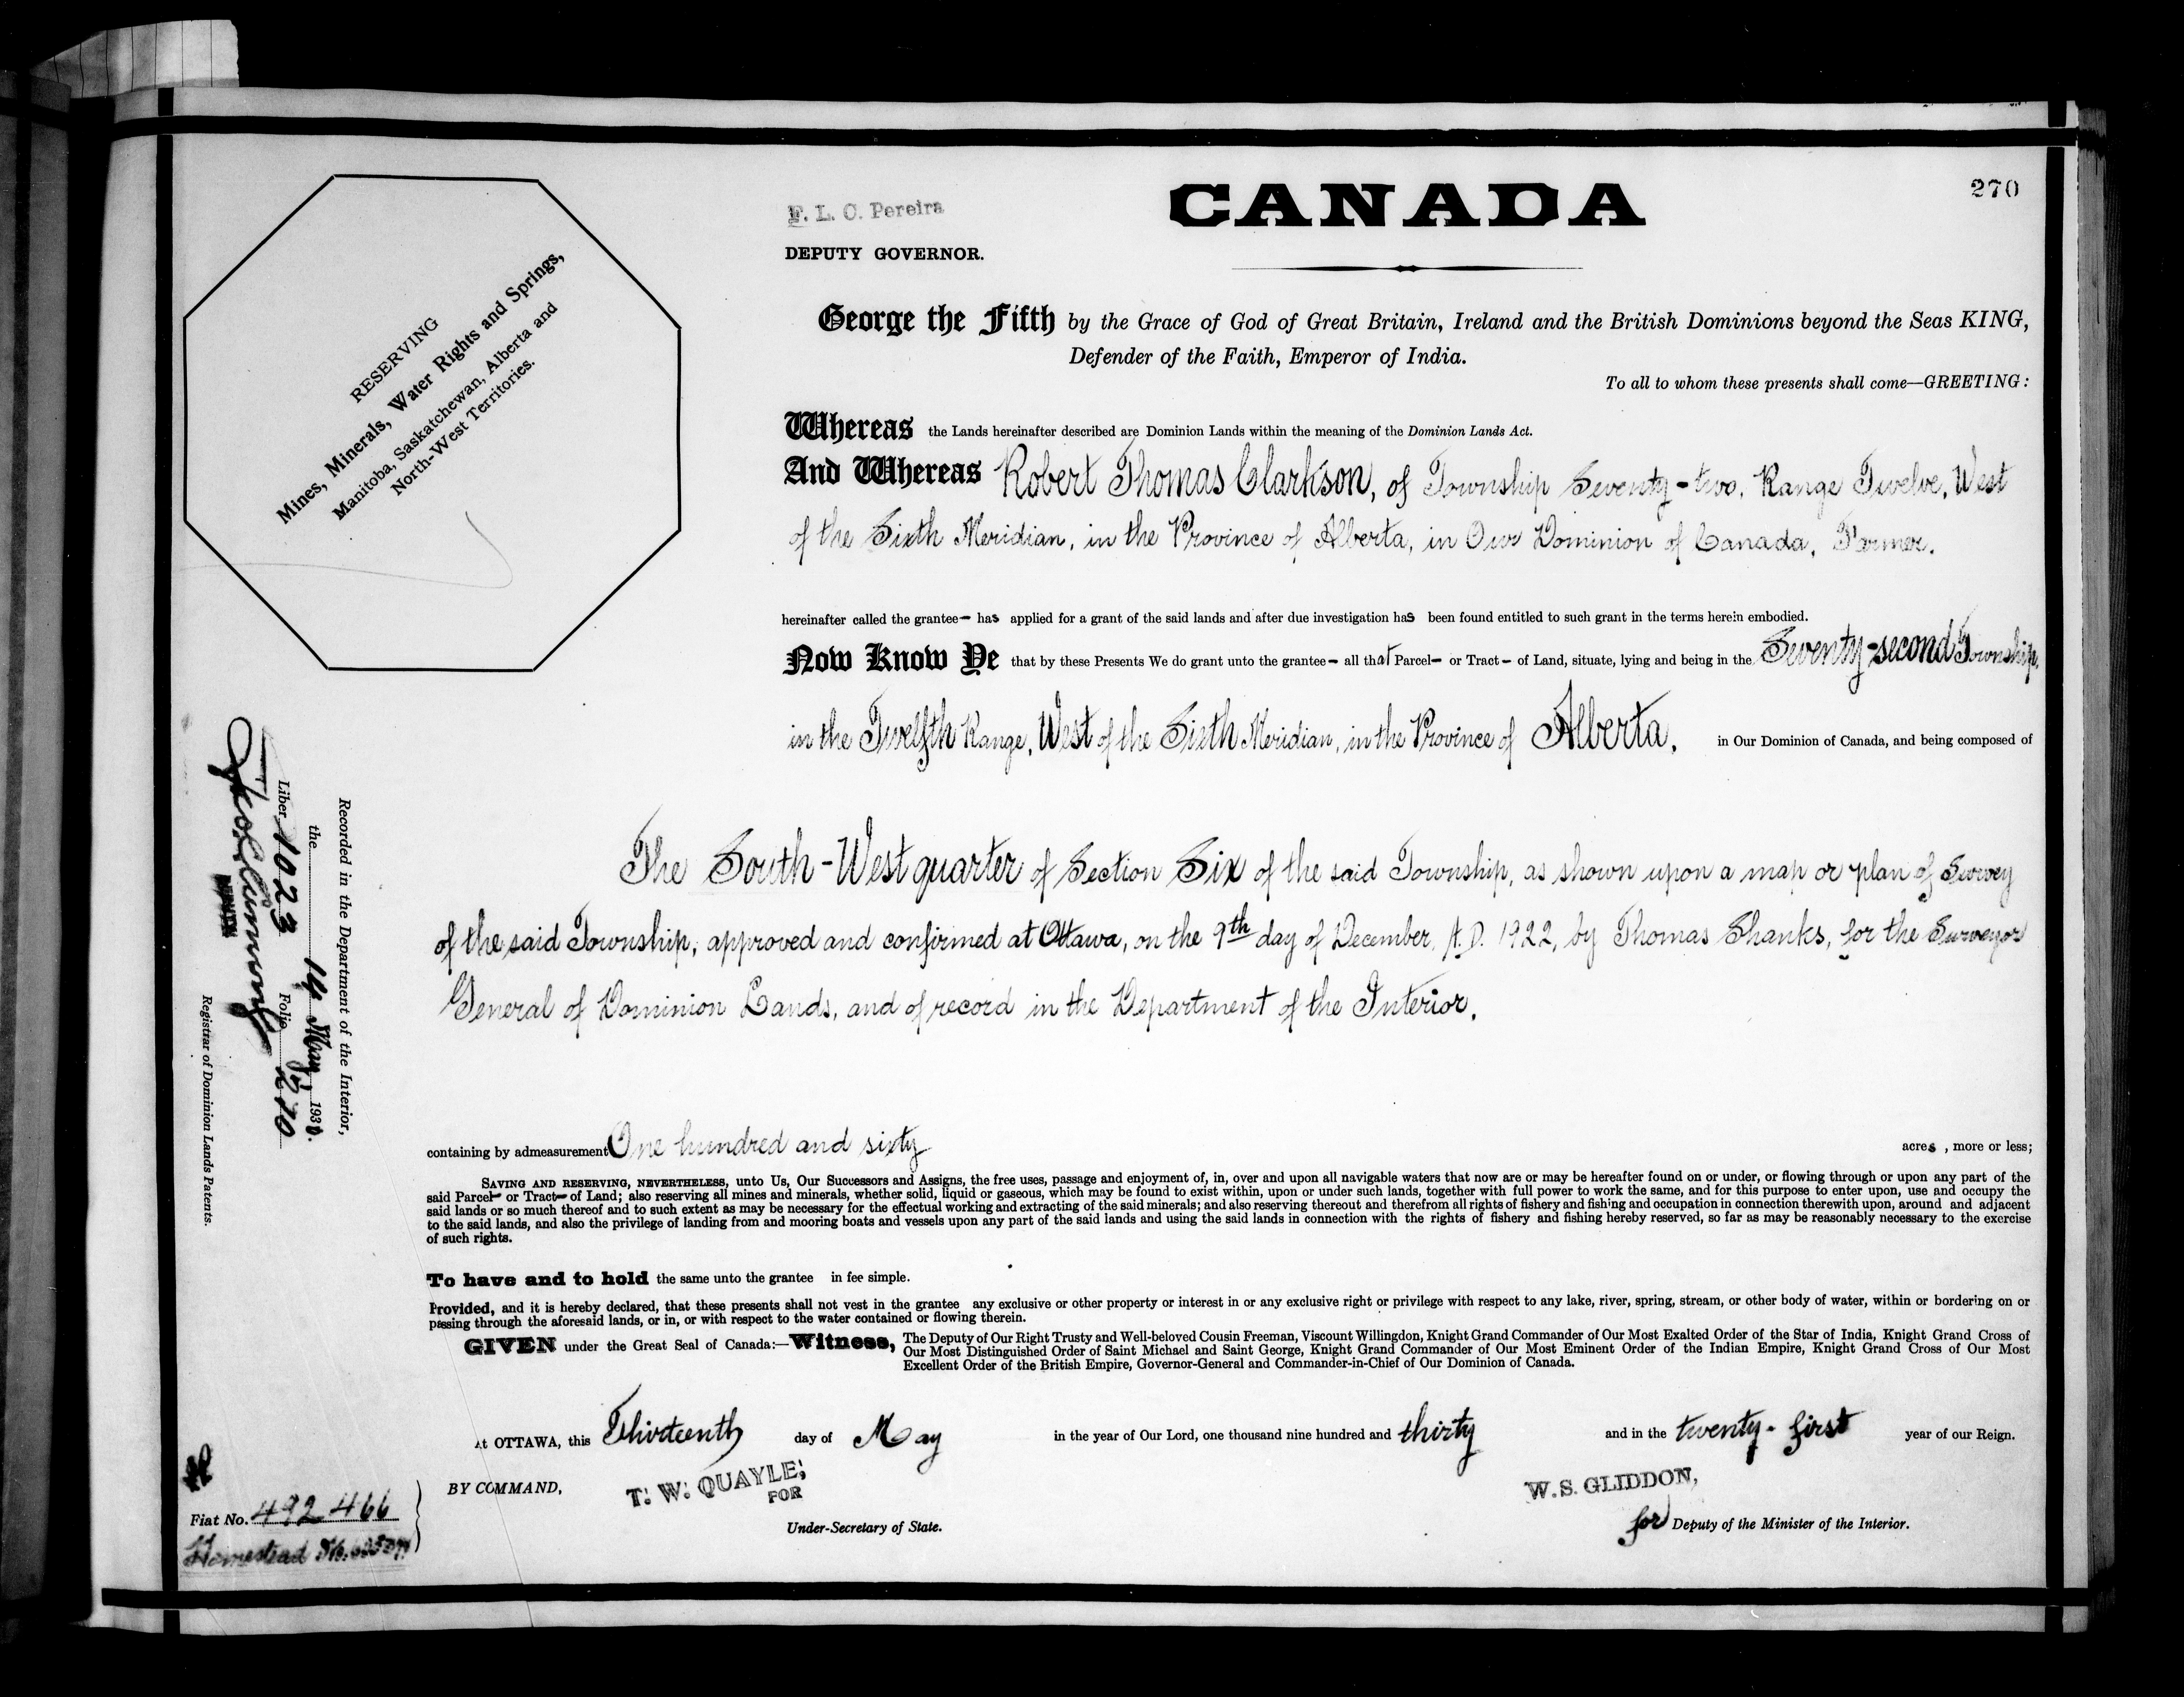 270
F. L. C. Pereira
CANADA
DEPUTY GOVERNOR.
RESERVING
Mines, Minerals, Water Rights and Springs,
Manitoba, Saskatchewan, Alberta and
North-West Territories.
George the Fifth by the Grace of God of Great Britain, Ireland and the British Dominions beyond the Seas KING,
Defender of the Faith, Emperor of India.
To all to whom these presents shall come—GREETING:
Whereas the Lands hereinafter described are Dominion Lands within the meaning of the Dominion Lands Act.
And Whereas Robert Thomas Clarkson, of Township Seventy-two, Range Twelve, West
of the Sixth Meridian, in the Province of Alberta, in Our Dominion of Canada, Farmer.
hereinafter called the grantee— has applied for a grant of the said lands and after due investigation has been found entitled to such grant in the terms herein embodied.
Now Know Ye that by these Presents We do grant unto the grantee— all that Parcel— or Tract— of Land, situate, lying and being in the Seventy-second Township,
in the Twelfth Range, West of the Sixth Meridian, in the Province of Alberta, in Our Dominion of Canada, and being composed of
The South-West quarter of Section Six of the said Township, as shown upon a map or plan of Survey
of the said Township, approved and confirmed at Ottawa, on the 9th day of December, A.D. 1922, by Thomas Shanks, for the Surveyor
General of Dominion Lands, and of record in the Department of the Interior.
Recorded in the Department of the Interior,
the 14 May 1930.
Liber 1023 Folio 270
Registrar of Dominion Lands Patents.
containing by admeasurement One hundred and sixty acres, more or less;
SAVING AND RESERVING, NEVERTHELESS, unto Us, Our Successors and Assigns, the free uses, passage and enjoyment of, in, over and upon all navigable waters that now are or may be hereafter found on or under, or flowing through or upon any part of the
said Parcel— or Tract— of Land; also reserving all mines and minerals, whether solid, liquid or gaseous, which may be found to exist within, upon or under such lands, together with full power to work the same, and for this purpose to enter upon, use and occupy the
said lands or so much thereof and to such extent as may be necessary for the effectual working and extracting of the said minerals; and also reserving thereout and therefrom all rights of fishery and fishing and occupation in connection therewith upon, around and adjacent
to the said lands, and also the privilege of landing from and mooring boats and vessels upon any part of the said lands and using the said lands in connection with the rights of fishery and fishing hereby reserved, so far as may be reasonably necessary to the exercise
of such rights.
To have and to hold the same unto the grantee in fee simple.
Provided, and it is hereby declared, that these presents shall not vest in the grantee any exclusive or other property or interest in or any exclusive right or privilege with respect to any lake, river, spring, stream, or other body of water, within or bordering on or
passing through the aforesaid lands, or in, or with respect to the water contained or flowing therein.
GIVEN under the Great Seal of Canada:—Witness, The Deputy of Our Right Trusty and Well-beloved Cousin Freeman, Viscount Willingdon, Knight Grand Commander of Our Most Exalted Order of the Star of India, Knight Grand Cross of
Our Most Distinguished Order of Saint Michael and Saint George, Knight Grand Commander of Our Most Eminent Order of the Indian Empire, Knight Grand Cross of Our Most
Excellent Order of the British Empire, Governor-General and Commander-in-Chief of Our Dominion of Canada.
At OTTAWA, this Thirteenth day of May in the year of Our Lord, one thousand nine hundred and thirty and in the twenty-first year of our Reign.
BY COMMAND,
T. W. QUAYLE,
FOR
Under-Secretary of State.
W. S. GLIDDON,
for Deputy of the Minister of the Interior.
Fiat No. 492466
Homestead